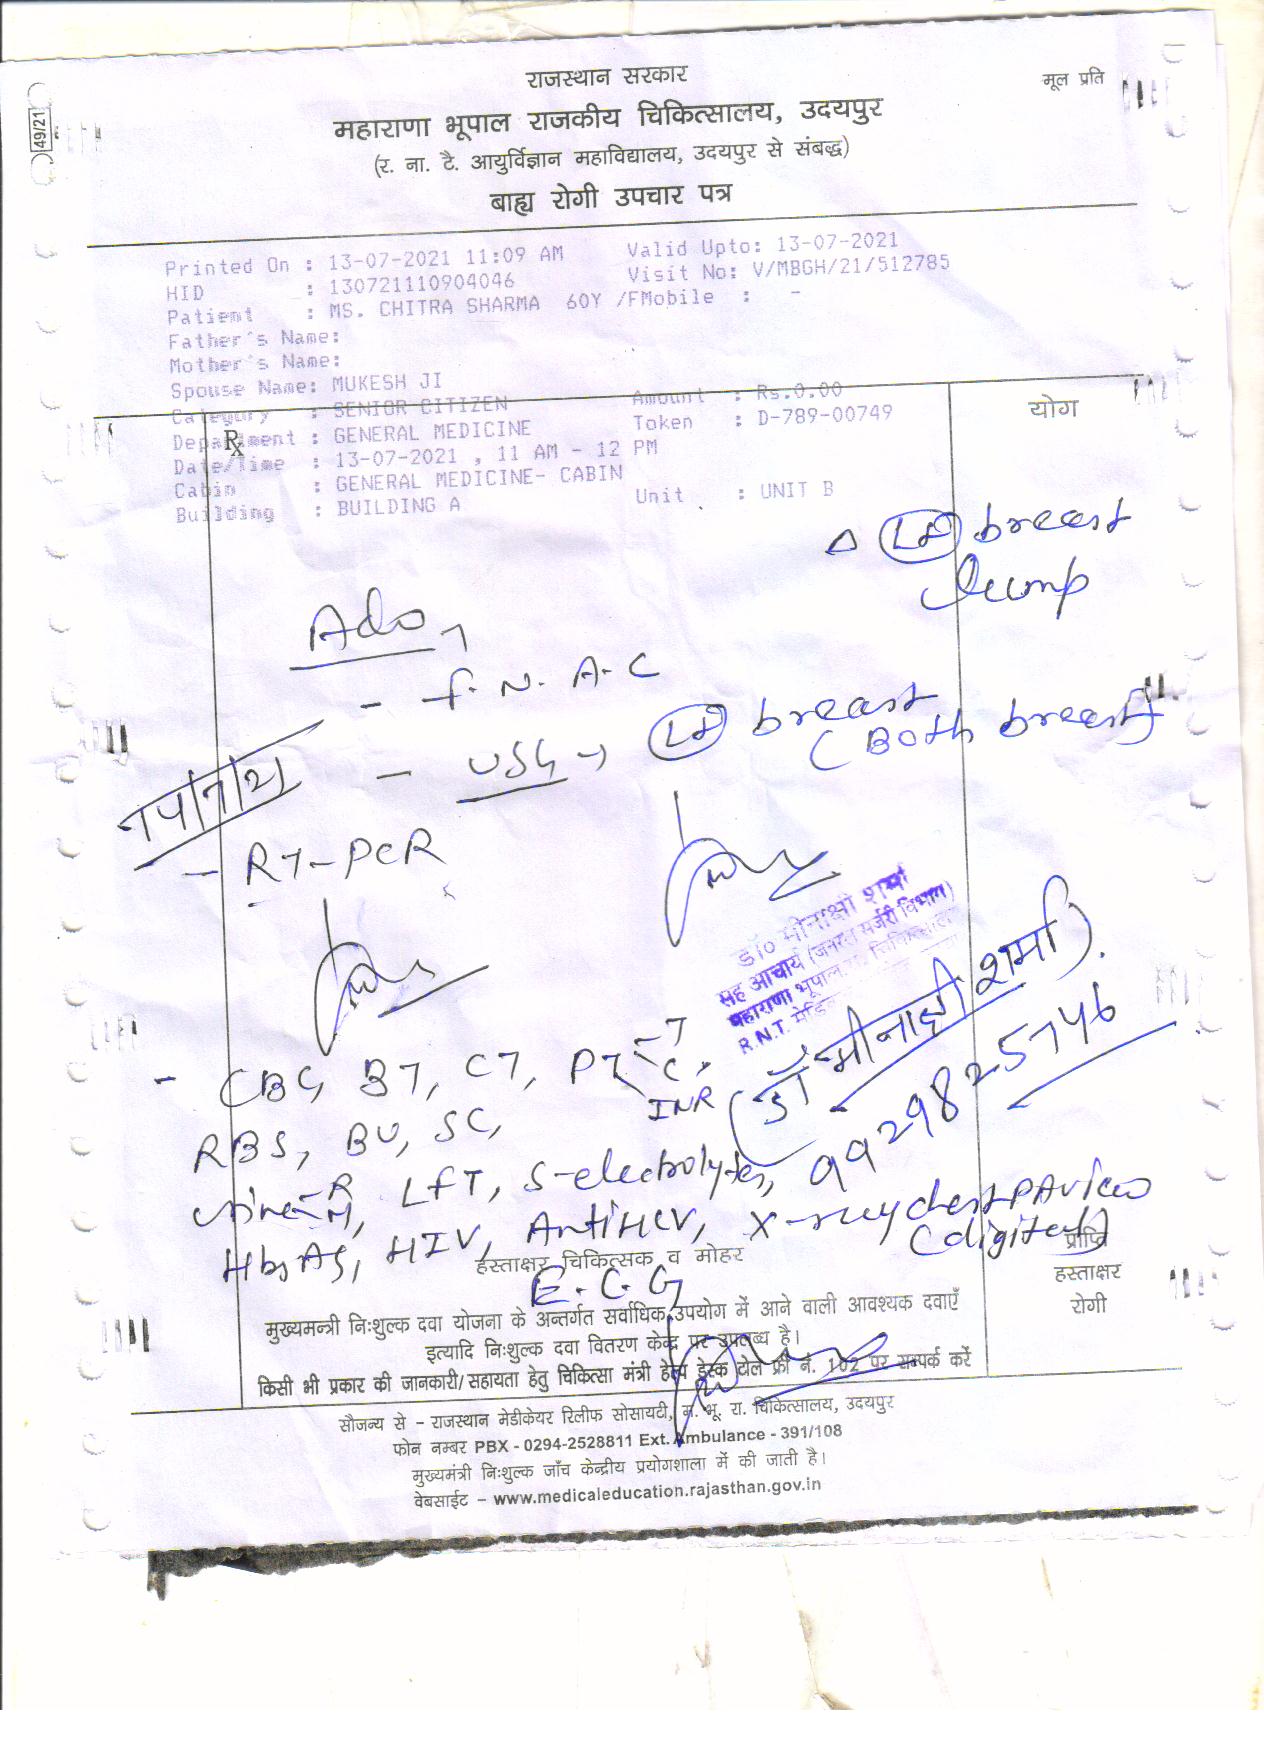 राजस्थान सरकार
मूल प्रति
49/21
महाराणा भूपाल राजकीय चिकित्सालय, उदयपुर
(र. ना. टै. आयुर्विज्ञान महाविद्यालय, उदयपुर से संबद्ध)
बाह्य रोगी उपचार पत्र
Printed On : 13-07-2021 11:09 AM Valid Upto: 13-07-2021
HID : 130721110904046 Visit No: V/MBGH/21/512785
Patient : MS. CHITRA SHARMA 60Y /FMobile : -
Father's Name:
Mother's Name:
Spouse Name: MUKESH JI
Category : SENIOR CITIZEN Amount : Rs.0.00
Department : GENERAL MEDICINE Token : D-789-00749
Date/Time : 13-07-2021 , 11 AM - 12 PM
Cabin : GENERAL MEDICINE- CABIN
Building : BUILDING A Unit : UNIT B
Rx
योग
Δ Lt breast
lump
Adv
- F.N.A.C
- USG → Lt breast
(Both breast)
- RT-PCR
डॉ० मीनाक्षी शर्मा
सह आचार्य (जनरल सर्जरी विभाग)
महाराणा भूपाल रा. चिकित्सालय
R.N.T.
(डॉ मीनाक्षी शर्मा).
9929825746
- CBC, BT, CT, PT T C, INR
RBS, BU, SC,
Urine R M, LFT, S-electrolytes,
HbsAg, HIV, AntiHCV, X-ray chest PA view
(digital)
E.C.G
हस्ताक्षर चिकित्सक व मोहर
प्राप्ति
हस्ताक्षर
रोगी
मुख्यमन्त्री निःशुल्क दवा योजना के अन्तर्गत सर्वाधिक उपयोग में आने वाली आवश्यक दवाएँ
इत्यादि निःशुल्क दवा वितरण केन्द्र पर उपलब्ध है।
किसी भी प्रकार की जानकारी/सहायता हेतु चिकित्सा मंत्री हेल्प डेस्क टोल फ्री नं. 102 पर सम्पर्क करें
सौजन्य से - राजस्थान मेडीकेयर रिलीफ सोसायटी, म. भू. रा. चिकित्सालय, उदयपुर
फोन नम्बर PBX - 0294-2528811 Ext. Ambulance - 391/108
मुख्यमंत्री निःशुल्क जाँच केन्द्रीय प्रयोगशाला में की जाती है।
वेबसाईट - www.medicaleducation.rajasthan.gov.in